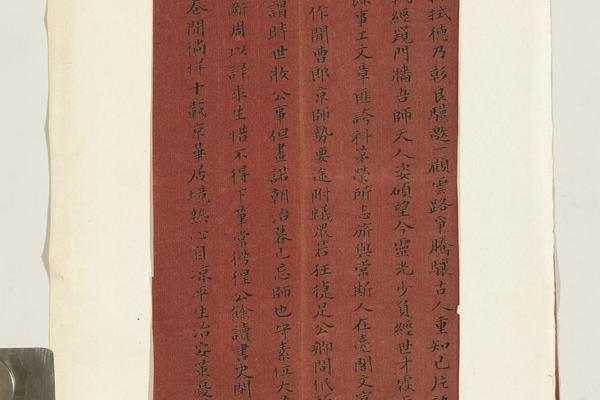 拭德乃彰良驥邀一顧雲路爭騰驤古人重知己片
經窺門牆吾師天人姿碩望今靈光少負經世才
事工文章匪誇科第榮所志旅與常斯人在臺閣文
作閒曹郎京師勢要途附蟻眾若狂捷足公卿間低
謂時世妝公事但畫諾朝治暮已忘師也守素位大
斷周以詳求生惜不得下筆常徬徨公餘讀書史閉
叄閒徜徉十載京華居境熱心自涼平生治安策憂